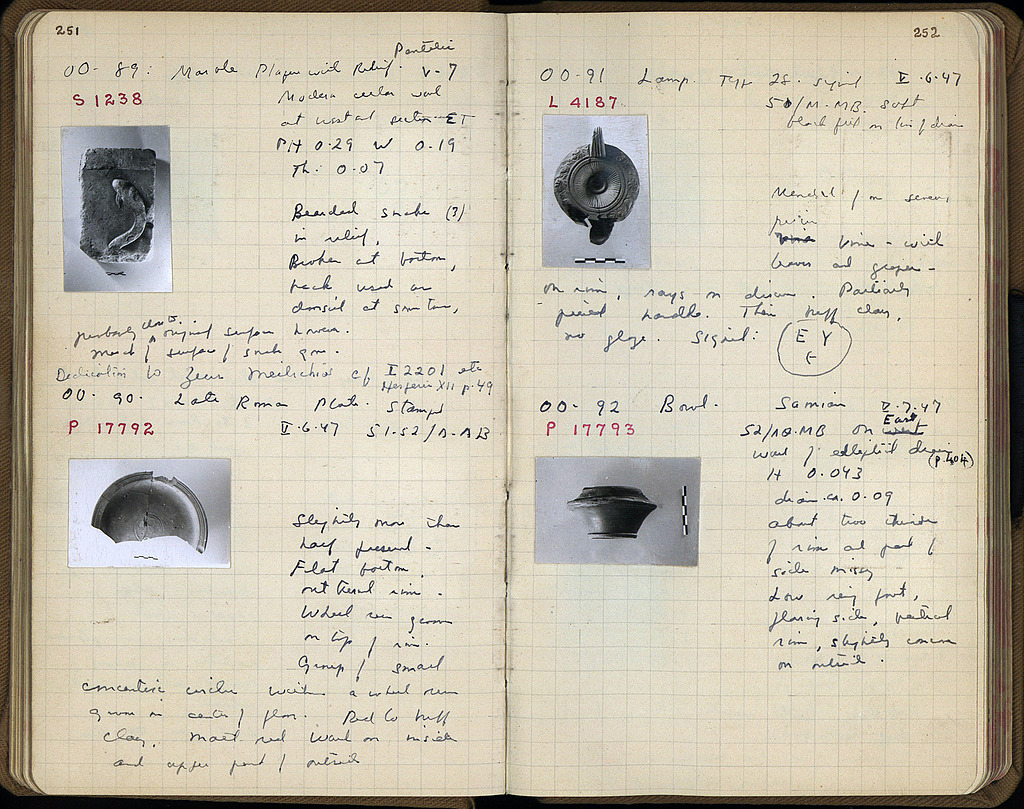 251
Pentelic
OO- 89: Marble Plaque with Relief. V-7
S 1238
Modern cellar wall
at west at section ET
PH 0.29 W 0.19
Th. 0.07
Bearded snake (3)
in relief,
Broken at bottom,
back used as
at
original surface
most / surface / snake gone.
Dedication to Zeus Meilichios cf I 2201 etc
Hesperia XII p. 49
OO- 90. Late Roman Plate. Stamped
P 17792
V.6.47 51-52/A-AB
Slightly more than
half present -
Flat bottom,
outturned rim.
Wheel run groove
on top / rim.
Group / small
concentric circles within a wheel run
groove on center / floor. Red to buff
clay, matt red wash on inside
and upper part / outside
252
OO-91 Lamp. Type 28. signed V.6.47
L 4187
50/M.MB soft
black fill on line / drain
Mended / on several
vine - with
leaves and grapes -
on rim, rays on discus. Partially
pierced handle. Thin buff clay,
no glaze. Signed:
E Y
OO- 92 Bowl. Samian V.7.47
P 17793
52/ MB on East
wall / elliptical drain
(p 404)
H 0.043
diam. ca. 0.09
about two thirds
/ rim and part /
side missing
Low ring foot,
flaring side, vertical
rim, slightly concave
on outside.